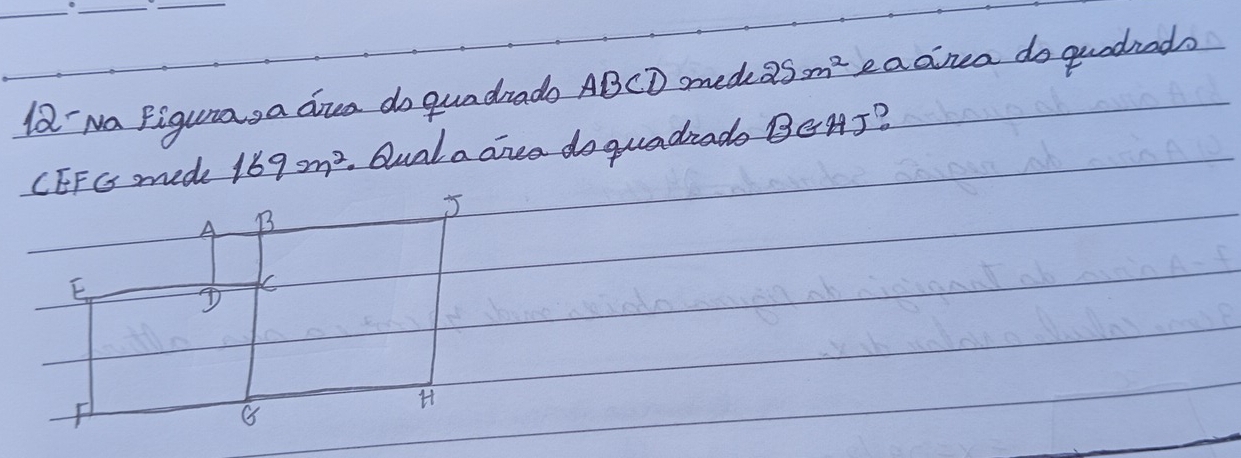 12-Na Figura, a área do quadrado ABCD mede 25 m² e a área do quadrado
CEFG mede 169 m². Qual a área do quadrado BGHJ?
A B J
E D C
F G H